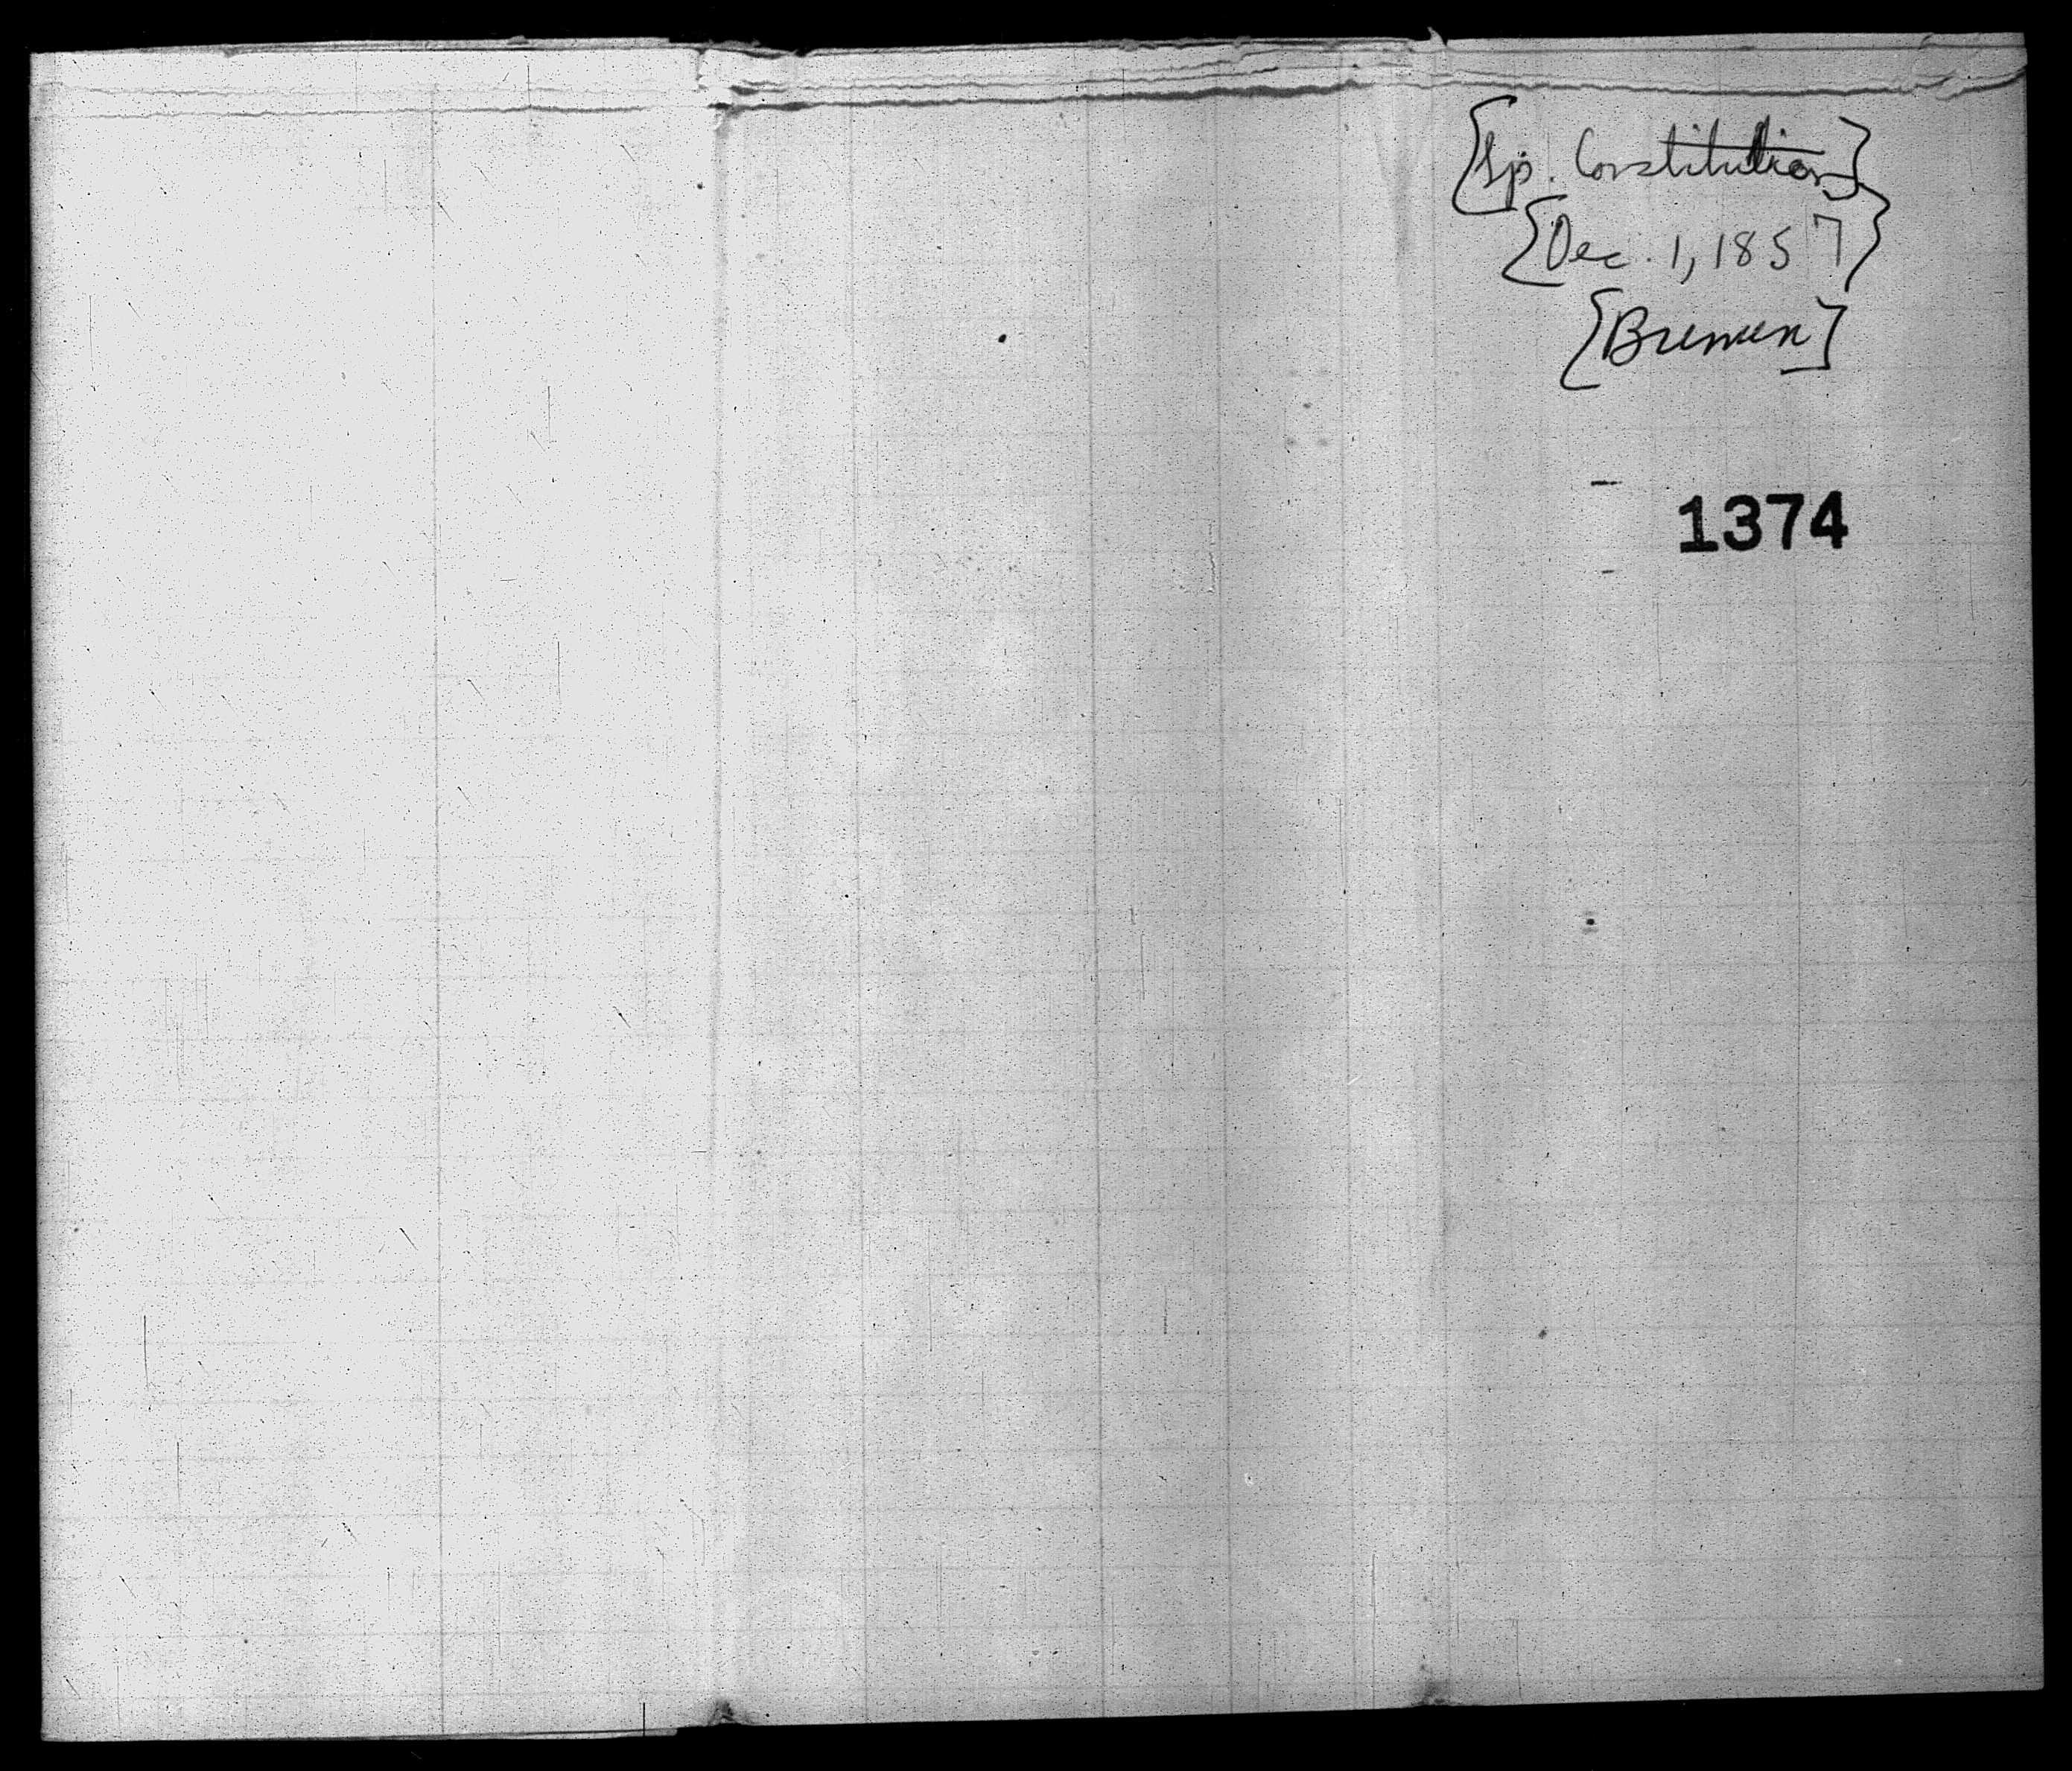 [Sp. Constitution]
[Dec. 1, 1857]
[Bremen]
1374